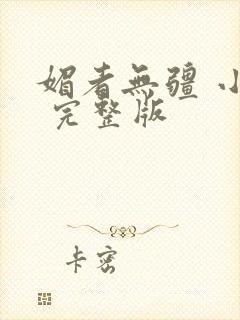 媚者無疆 小
完整版
卡密